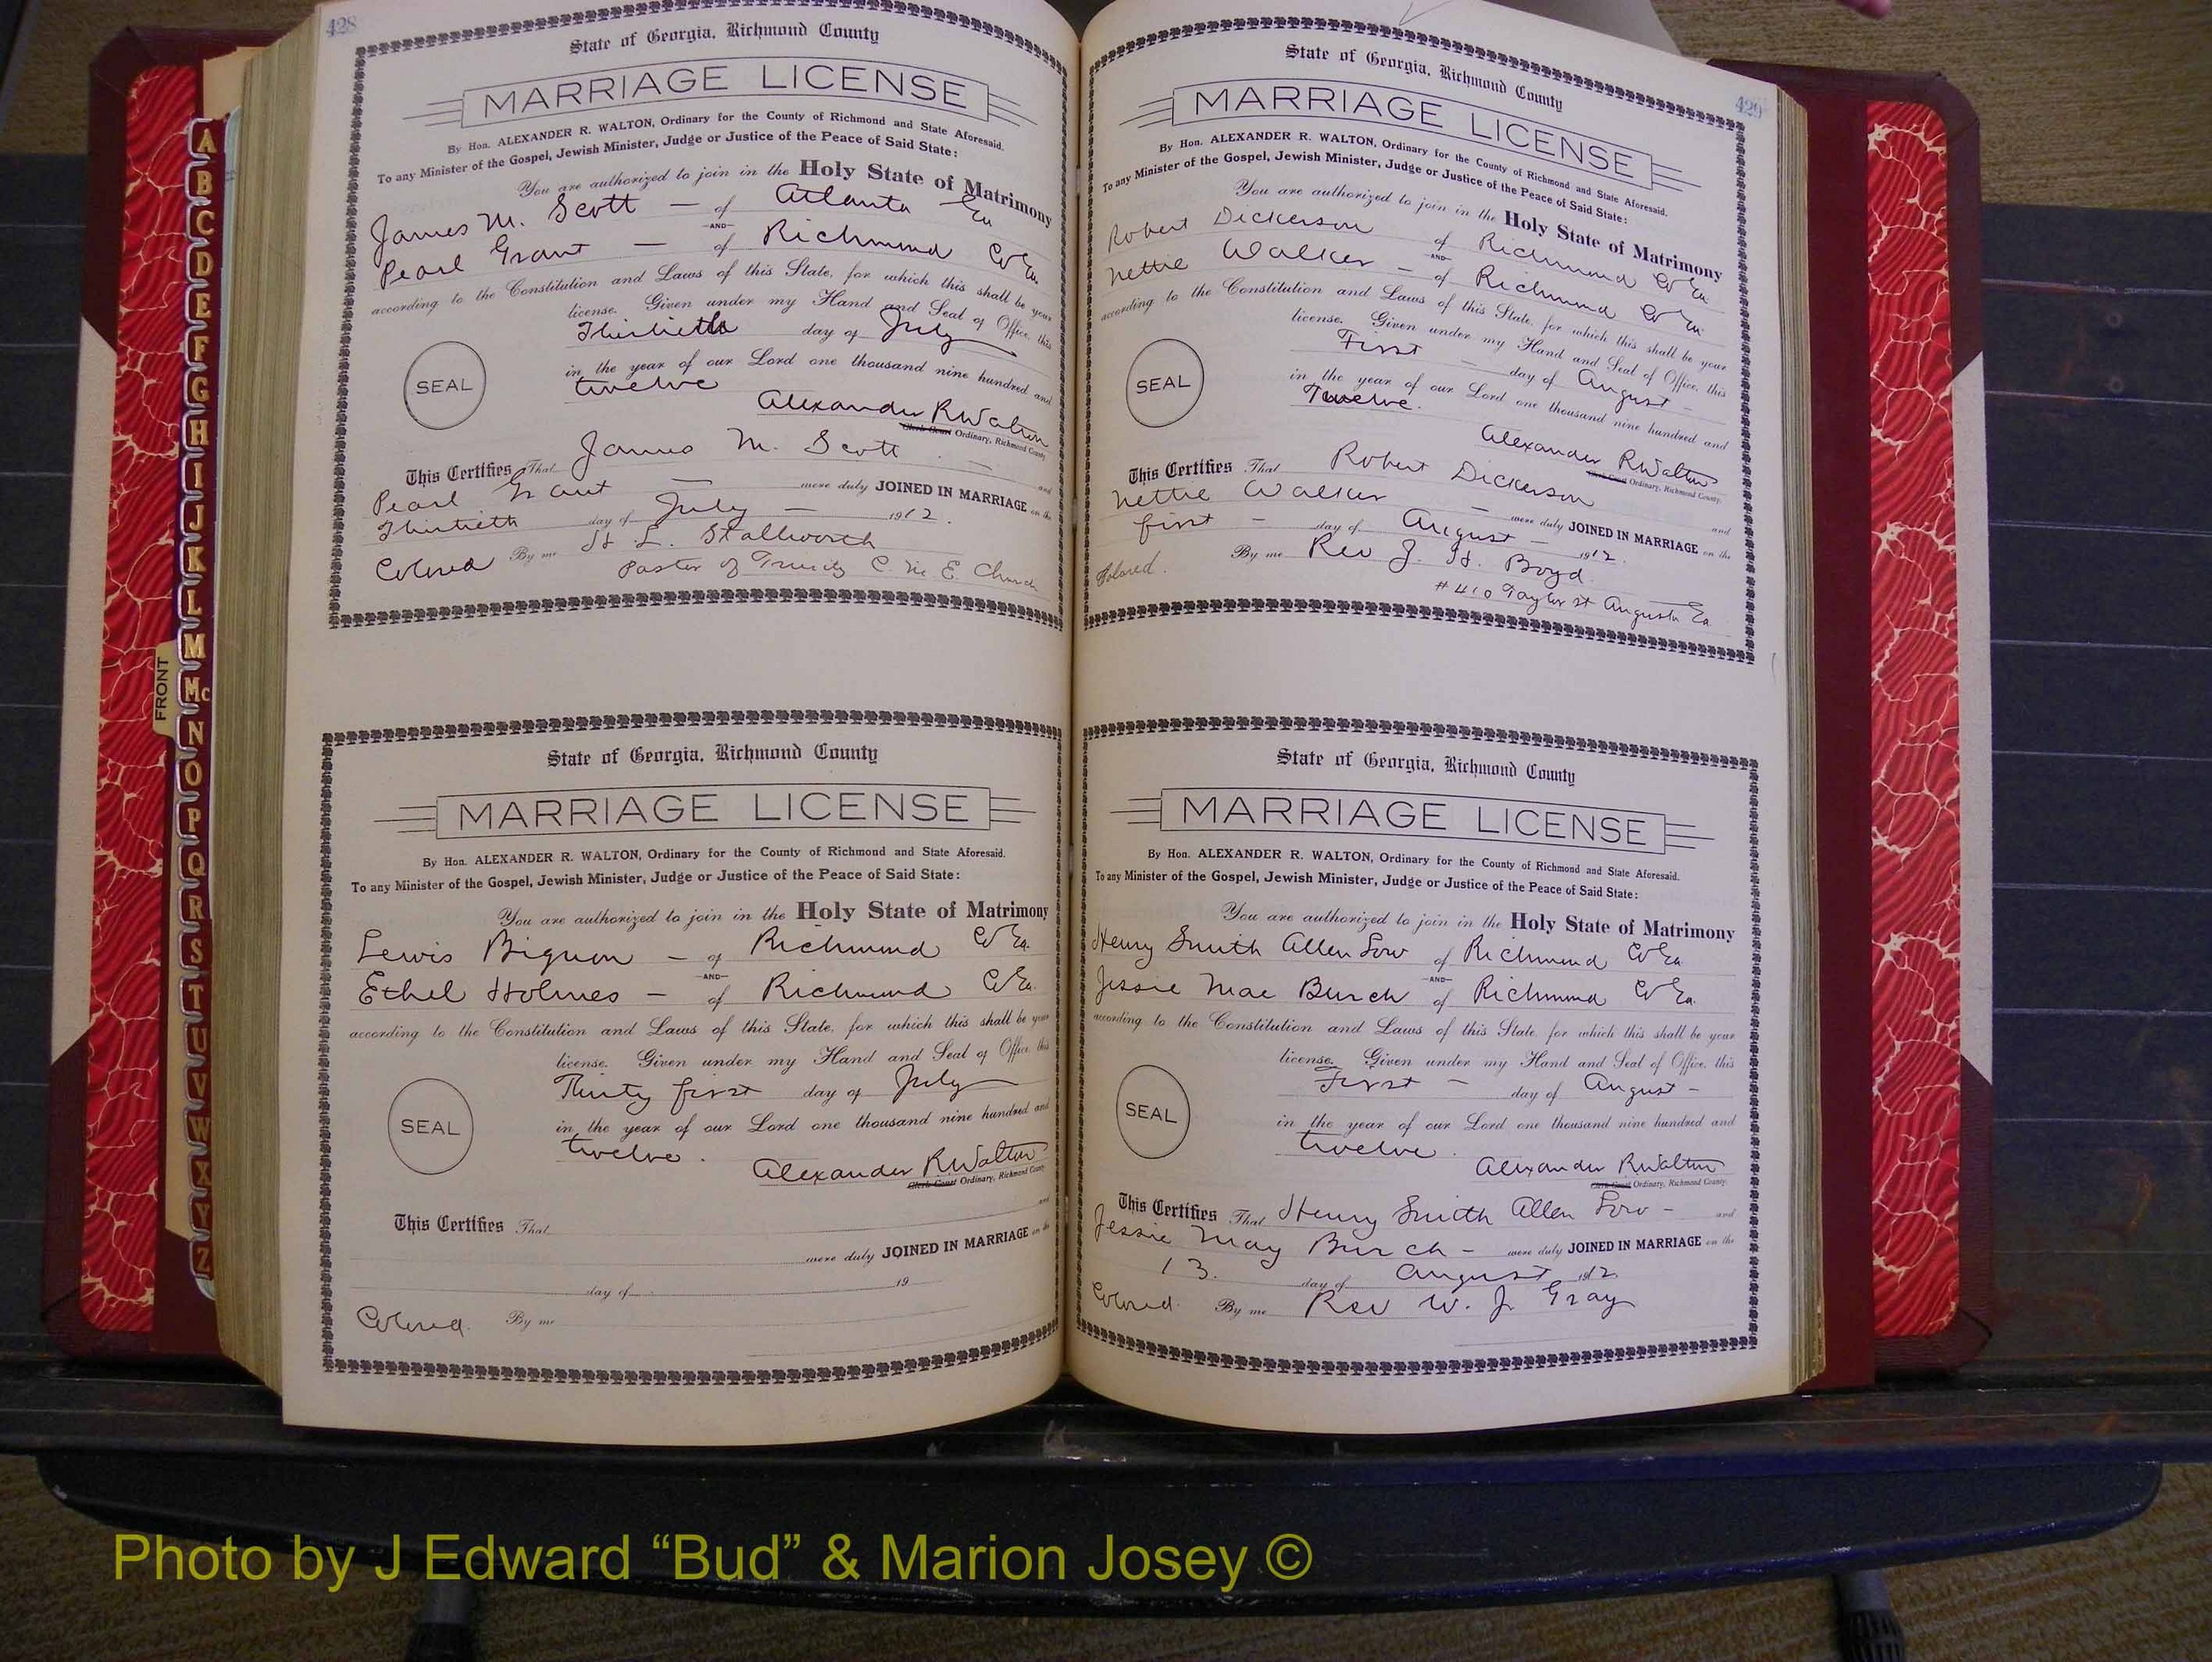 428
State of Georgia, Richmond County
MARRIAGE LICENSE
By Hon. ALEXANDER R. WALTON, Ordinary for the County of Richmond and State Aforesaid.
To any Minister of the Gospel, Jewish Minister, Judge or Justice of the Peace of Said State:
You are authorized to join in the Holy State of Matrimony
James M. Scott — of Atlanta Ga
—AND—
Pearl Grant — of Richmond Co Ga.
according to the Constitution and Laws of this State, for which this shall be your
license. Given under my Hand and Seal of Office, this
Thirtieth day of July
in the year of our Lord one thousand nine hundred and
twelve
SEAL
Alexander R Walton
Clerk Court Ordinary, Richmond County
This Certifies That James M. Scott — and
Pearl Grant — were duly JOINED IN MARRIAGE on the
Thirtieth day of July — 1912.
Colored By me H. L. Stallworth
Pastor of Trinity C. M. E. Church
State of Georgia, Richmond County
MARRIAGE LICENSE
By Hon. ALEXANDER R. WALTON, Ordinary for the County of Richmond and State Aforesaid.
To any Minister of the Gospel, Jewish Minister, Judge or Justice of the Peace of Said State:
You are authorized to join in the Holy State of Matrimony
Lewis Bignon — of Richmond Co Ga.
—AND—
Ethel Holmes — of Richmond Co Ga.
according to the Constitution and Laws of this State, for which this shall be your
license. Given under my Hand and Seal of Office, this
Thirty first day of July
in the year of our Lord one thousand nine hundred and
twelve.
SEAL
Alexander R Walton
Clerk Court Ordinary, Richmond County
and
This Certifies That
were duly JOINED IN MARRIAGE on the
day of 19
Colored. By me
429
State of Georgia, Richmond County
MARRIAGE LICENSE
By Hon. ALEXANDER R. WALTON, Ordinary for the County of Richmond and State Aforesaid.
To any Minister of the Gospel, Jewish Minister, Judge or Justice of the Peace of Said State:
You are authorized to join in the Holy State of Matrimony
Robert Dickerson of Richmond Co Ga.
—AND—
Nettie Walker — of Richmond Co Ga
according to the Constitution and Laws of this State, for which this shall be your
license. Given under my Hand and Seal of Office, this
First — day of August —
in the year of our Lord one thousand nine hundred and
Twelve.
SEAL
Alexander R Walton
Clerk Court Ordinary, Richmond County.
This Certifies That Robert Dickerson and
Nettie Walker — were duly JOINED IN MARRIAGE on the
first — day of August — 1912.
Colored. By me Rev J. H. Boyd
#410 Taylor st Augusta Ga
State of Georgia, Richmond County
MARRIAGE LICENSE
By Hon. ALEXANDER R. WALTON, Ordinary for the County of Richmond and State Aforesaid.
To any Minister of the Gospel, Jewish Minister, Judge or Justice of the Peace of Said State:
You are authorized to join in the Holy State of Matrimony
Henry Smith Allen Low of Richmond Co Ga
—AND—
Jessie Mae Burch of Richmond Co Ga.
according to the Constitution and Laws of this State, for which this shall be your
license. Given under my Hand and Seal of Office, this
First — day of August —
in the year of our Lord one thousand nine hundred and
twelve.
SEAL
Alexander R Walton
Clerk Court Ordinary, Richmond County.
This Certifies That Henry Smith Allen Low — and
Jessie May Burch — were duly JOINED IN MARRIAGE on the
13. day of August 1912
Colored. By me Rev W. J. Gray
FRONT
A
B
C
D
E
F
G
H
I
J
K
L
M
Mc
N
O
P
Q
R
S
T
U
V
W
X
Y
Z
Photo by J Edward “Bud” & Marion Josey ©